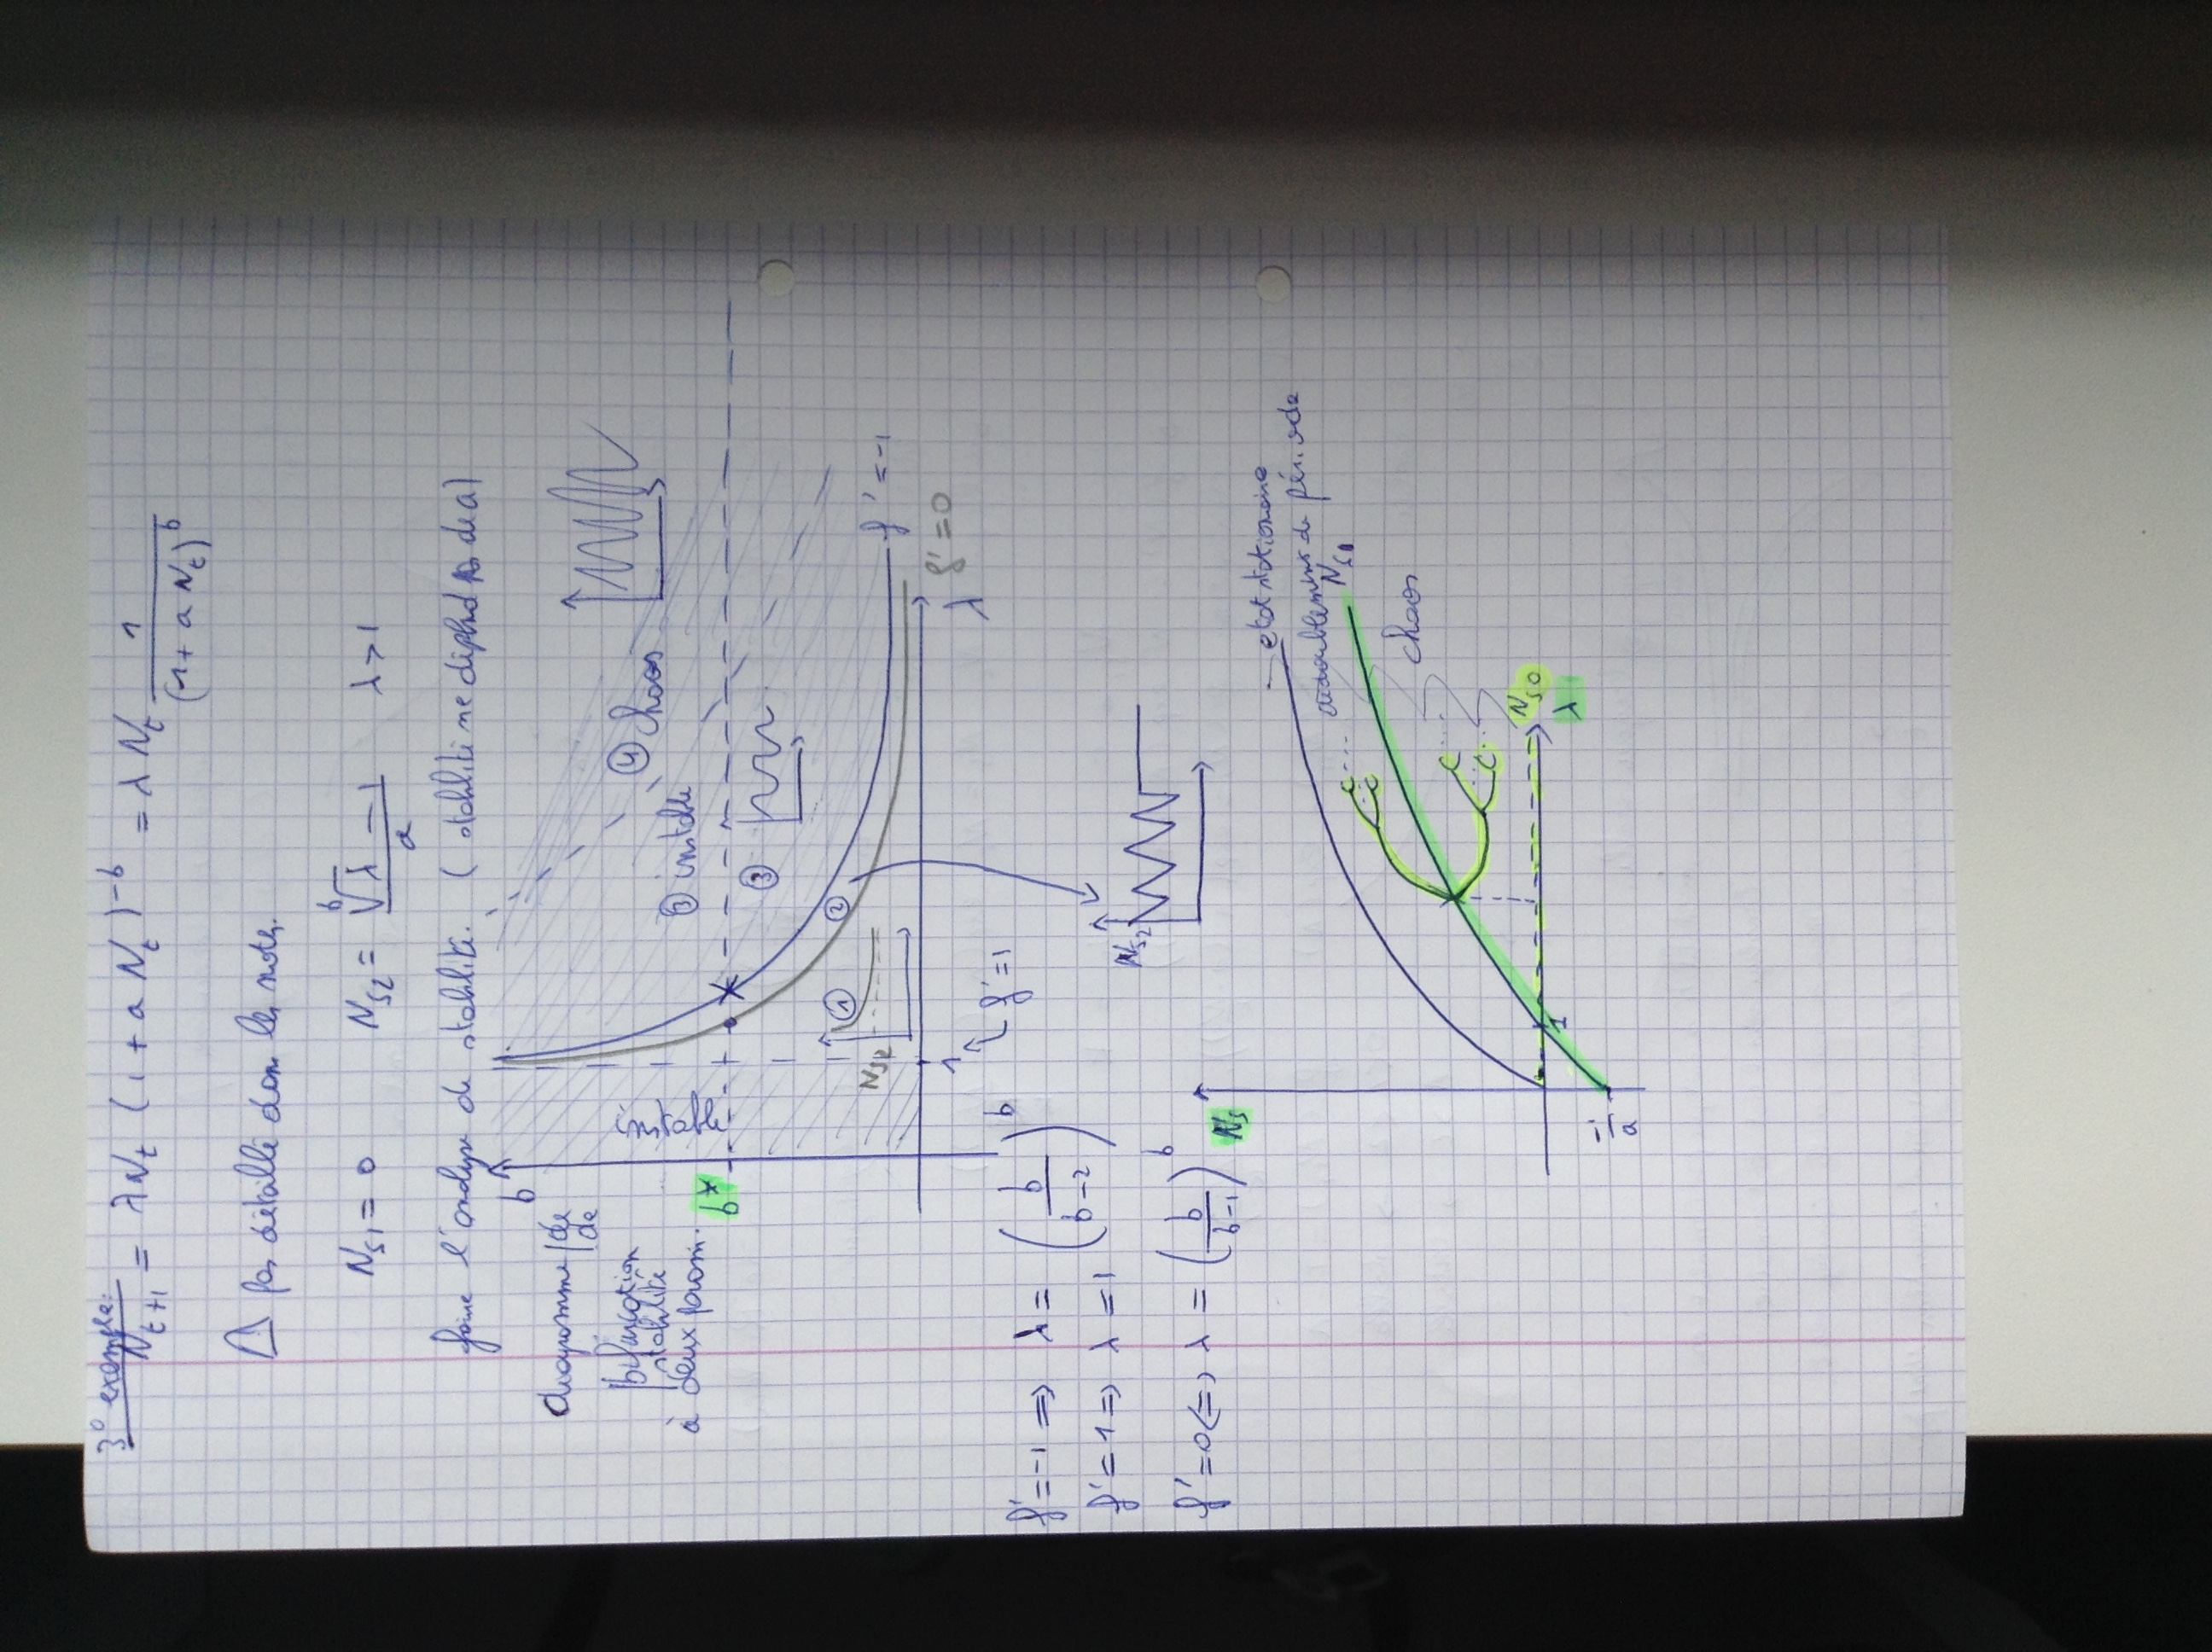 3° exemple:
N_{t+1} = λN_t (1 + a N_t)^{-b} = λ N_t \frac{1}{(1 + a N_t)^b}
⚠ pas détaillé dans les notes.
N_{S1} = 0 N_{S2} = \frac{\sqrt[b]{λ} - 1}{a} λ > 1
faire l'analyse de stabilité. (stabilité ne dépend pas de a)
b
diagramme de
de
bifurcation
stabilité
à deux param.
instable
④ chaos
③ instable
b*
③
① ②
N_{S2}
f' = -1
1
f' = 0
λ
f' = 1
f' = -1 ⇒ λ = (\frac{b}{b-2})^b
f' = 1 ⇒ λ = 1
N_{S2}
f' = 0 ⇔ λ = (\frac{b}{b-1})^b
N_S
etat stationnaire
dédoublement de période
chaos
1
N_{S0}
λ
\frac{-1}{a}